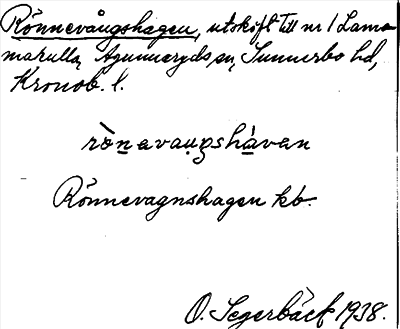 Rönnevångshagen, utskift till nr 1 Lamm-
makulla, Agunnaryds sn, Sunnerbo hd,
Kronob. l.
rònavaųŋshàvan
Rönnevagnshagen kb.
O. Segerbäck 1938.